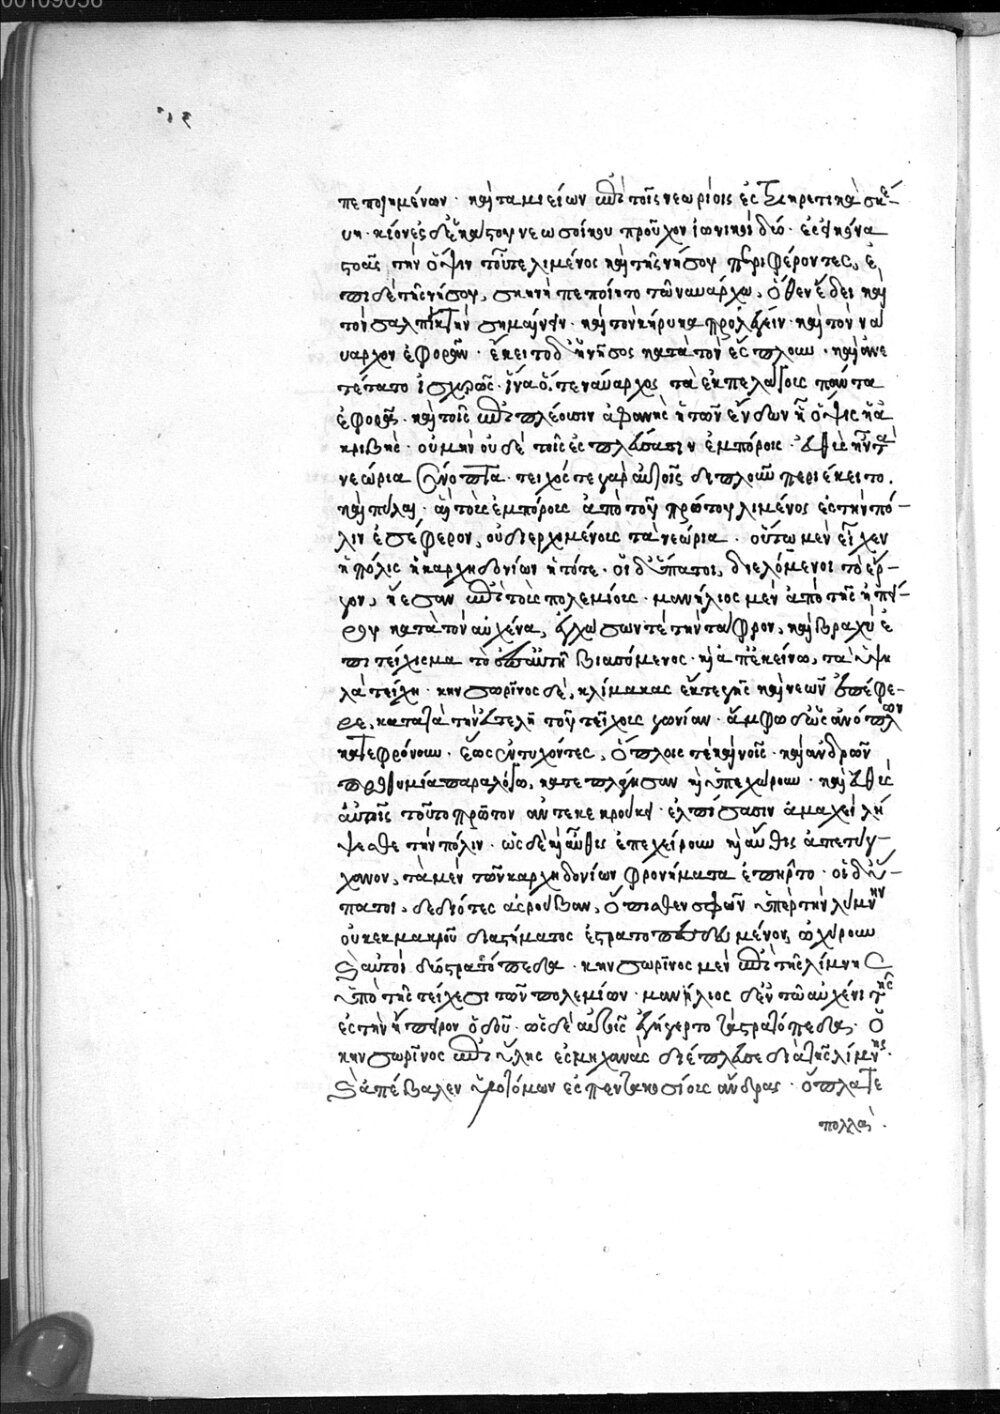 πεποιημένων· καὶ ταμιείων ἐπὶ τοῖς νεωρίοις ἐς τριηρετικὰ σκεύ-
η· κίονές δ' ἑκάστου νεωσοίκου προὔχον ἰωνικοὶ δύο· ἐς εἰκόνα
στοᾶς τὴν ὄψιν τοῦτε λιμένος καὶ τῆς νήσου περιφέροντες, ἐ
πὶ δὲ τῆς νήσου, σκηνὴ πεποίητο τῶ ναυάρχω, ὅθεν ἔδει καὶ
τὸν σαλπικτὴν σημαίνειν· καὶ τὸν κήρυκα προλέγειν· καὶ τὸν ναύ
αρχον ἐφορᾶν· ἔκειτο δ' ἡ νῆσος κατὰ τὸν ἔσπλουν· καὶ ἀνε
τέτατο ἰσχυρῶς· ἵνα ὅ, τε ναύαρχος τὰ ἐκ πελάγους πάντα
ἐφορᾶ· καὶ τοῖς ἐπιπλέουσιν ἀφανὴς ἦ τῶν ἔνδον ἡ ὄψις ἡ ἀ
κριβής· οὐ μὴν οὐδὲ τοῖς ἐσπλεύσασιν ἐμπόροις· εὐθὺς ἦν τὰ
νεώρια σύνοπτα· τεῖχός τε γὰρ αὐτοῖς διπλοῦν περιέκειτο.
καὶ πύλαι· αἳ τοὺς ἐμπόρους ἀπὸ τοῦ πρώτου λιμένος ἐς τὴν πό-
λιν ἐσέφερον, οὐ διερχομένους τὰ νεώρια· οὕτω μὲν εἶχεν
ἡ πόλις ἡ καρχηδονίων ἡ τότε· οἱ δ' ὕπατοι, διελόμενοι τὸ ἔρ-
γον, ἤεσαν ἐπὶ τοὺς πολεμίους· μανίλιος μὲν ἀπὸ τῆς ἠπεί-
ρου κατὰ τὸν αὐχένα, ἐγχώσων τέ τὴν τάφρον, καὶ βραχὺ ἐ
πιτείχισμα τὸ ἐπ' αὐτῆ βιασόμενος· καὶ ἀπ' ἐκείνω, τὰ ὑψη
λὰ τείχη· κηνσωρῖνος δὲ, κλίμακας ἔκ τε γῆς καὶ νεῶν ἐπέφε-
ρε, κατὰ τὴν εὐτελῆ τοῦ τείχους γωνίαν· ἄμφω δ' ὡς ἀνόπλων
κατεφρόνουν· ἕως ἐντυχόντες, ὅπλοις τε καινοῖς· καὶ ἀνδρῶν
προθυμία παραλόγω, κατεπλάγησαν καὶ ὑπεχώρουν· καὶ εὐθὺς
αὐτοῖς τοῦτο πρῶτον ἀντεκεκρούκει· ἐλπίσασιν ἀμαχεὶ λή
ψεσθαι τὴν πόλιν· ὡς δὲ καὶ αὖθις ἐπεχείρουν καὶ αὖθις ἀπετύγ-
χανον, τὰ μὲν τῶν καρχηδονίων φρονήματα ἐπῆρτο· οἱ δ' ὕ-
πατοι, δεδιότες ἀσρούβαν, ὄπισθεν σφῶν ὑπὲρ τὴν λίμνην
οὐκ ἐκ μακροῦ διαστήματος ἐστρατοπεδευμένον, ὠχύρουν
καὶ αὐτοὶ δύο στρατόπεδα· κηνσωρῖνος μὲν ἐπὶ τῆς λίμνης
ὑπὸ τοῖς τείχεσι τῶν πολεμίων· μανίλιος δ' ἐν τῶ αὐχένι τῆς
ἐς τὴν ἤπειρον ὁδοῦ· ὡς δὲ αὐτοῖς ἐγήγερτο τὰ στρατόπεδα. ὁ
κηνσωρῖνος ἐπὶ ὕλης ἐς μηχανὰς διέπλευσε διὰ τῆς λίμνης.
καὶ ἀπέβαλεν ὑλοτόμων ἐς πεντακοσίους ἄνδρας· ὅπλα τε
πολλά·